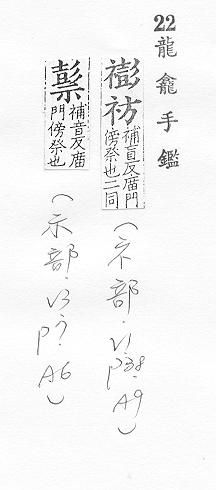 22 龍龕手鑑
𥛱祊 補盲反廟門
傍祭也二同
（ネ部.V1.
P38.
A9）
補盲反庿
門傍祭也
（示部.V3.
P?.
A6）